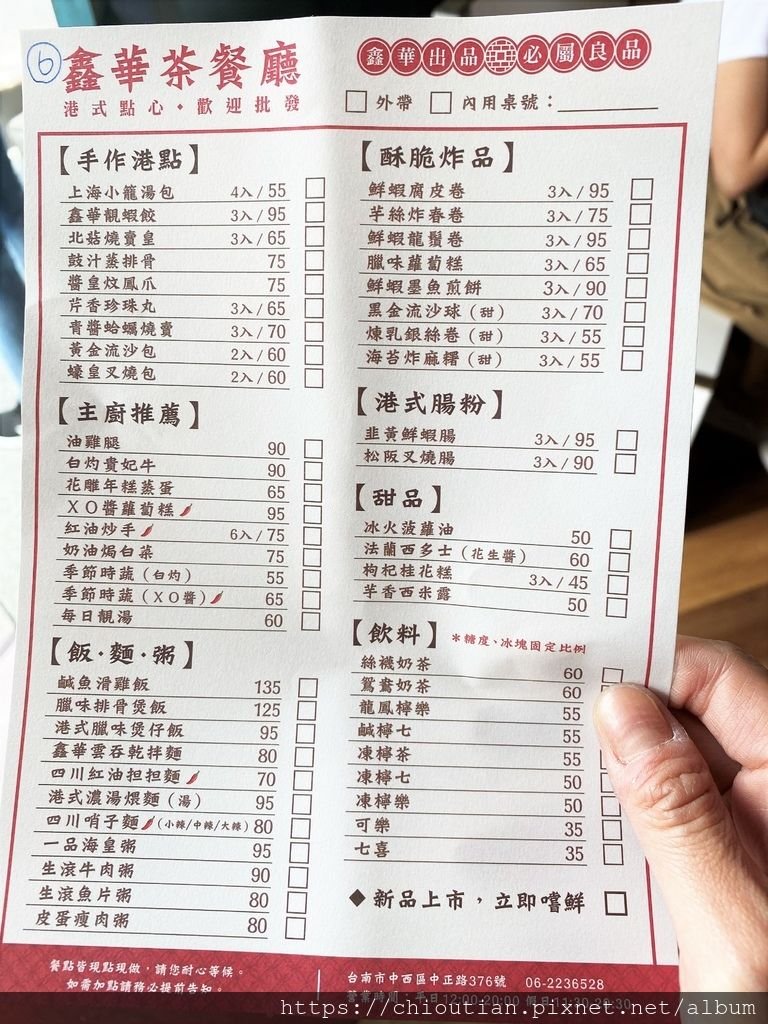 6
鑫華茶餐廳
港式點心・歡迎批發
鑫華出品 必屬良品
外帶 內用桌號：
【手作港點】
上海小籠湯包 4入/55
鑫華靚蝦餃 3入/95
北菇燒賣皇 3入/65
豉汁蒸排骨 75
醬皇炆鳳爪 75
芹香珍珠丸 3入/65
青醬蛤蠣燒賣 3入/70
黃金流沙包 2入/60
蠔皇叉燒包 2入/60
【主廚推薦】
油雞腿 90
白灼貴妃牛 90
花雕年糕蒸蛋 65
XO醬蘿蔔糕 95
紅油炒手 6入/75
奶油焗白菜 75
季節時蔬(白灼) 55
季節時蔬(XO醬) 65
每日靚湯 60
【飯・麵・粥】
鹹魚滑雞飯 135
臘味排骨煲飯 125
港式臘味煲仔飯 95
鑫華雲吞乾拌麵 80
四川紅油担担麵 70
港式濃湯煨麵(湯) 95
四川哨子麵(小辣/中辣/大辣) 80
一品海皇粥 95
生滾牛肉粥 90
生滾魚片粥 80
皮蛋瘦肉粥 80
【酥脆炸品】
鮮蝦腐皮卷 3入/95
芋絲炸春卷 3入/75
鮮蝦龍鬚卷 3入/95
臘味蘿蔔糕 3入/65
鮮蝦墨魚煎餅 3入/90
黑金流沙球(甜) 3入/70
煉乳銀絲卷(甜) 3入/55
海苔炸麻糬(甜) 3入/55
【港式腸粉】
韭黃鮮蝦腸 3入/95
松阪叉燒腸 3入/90
【甜品】
冰火菠蘿油 50
法蘭西多士(花生醬) 60
枸杞桂花糕 3入/45
芋香西米露 50
【飲料】 *糖度、冰塊固定比例
絲襪奶茶 60
鴛鴦奶茶 60
龍鳳檸樂 55
鹹檸七 55
凍檸茶 55
凍檸七 50
凍檸樂 50
可樂 35
七喜 35
◆新品上市，立即嚐鮮
餐點皆現點現做，請您耐心等候。
如需加點請務必提前告知。
台南市中西區中正路376號 06-2236528
營業時間：平日12:00-20:00 假日11:30-20:30
https://chioutian.pixnet.net/album